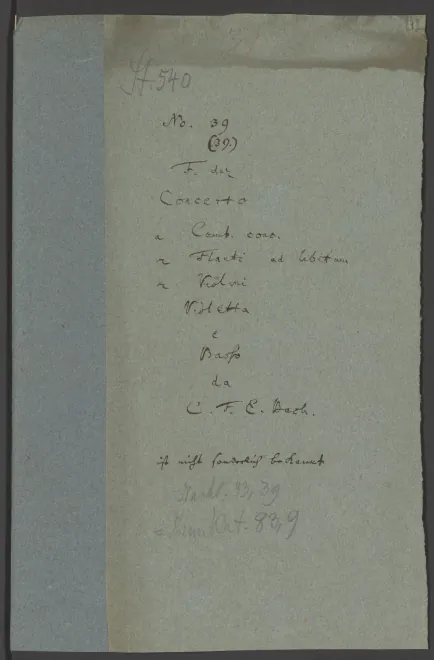 St. 540
No. 39
(39.)
F. dur
Concerto
a Cemb. conc.
2 Flauti ad libitum
2 Violini
Violetta
e
Basso
da
C. F. E. Bach.
ist nicht sonderlich bekannt
Nachl. 33, 39
Kat. 88, 9